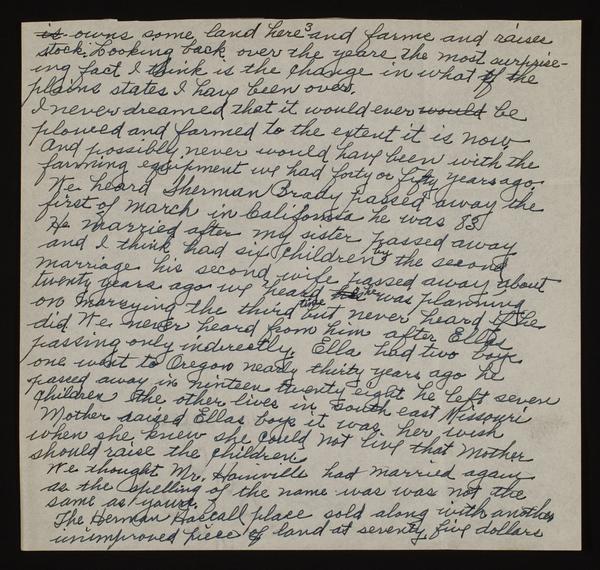 is owns some land here 3 and farms and raises
stock. Looking back over the years the most surprise-
ing fact I think is the change in what of the
plains states I have been over.
I never dreamed that it would ever would be
plowed and farmed to the extent it is now.
And possibly never would have been with the
farming equipment we had forty or fifty years ago.
We heard Sherman Brady passed away the
first of March in California he was 83.
He married after my sister passed away
and I think had six children by the second
marriage his second wife passed away about
twenty years ago we heard he was planning
on marrying the third time but never heard if he
did. We never heard from him after Ellas
passing only indirectly. Ella had two boys
one went to Oregon nearly thirty years ago he
passed away in nineteen twenty eight he left seven
children the other lives in south east Missouri
Mother raised Ellas boys it was her wish
when she knew she could not live that Mother
should raise the children.
We thought Mr. Hainville had married again
as the spelling of the name was was not the
same as yours.
The Herman Hascall place sold along with another
unimproved piece of land at seventy five dollars